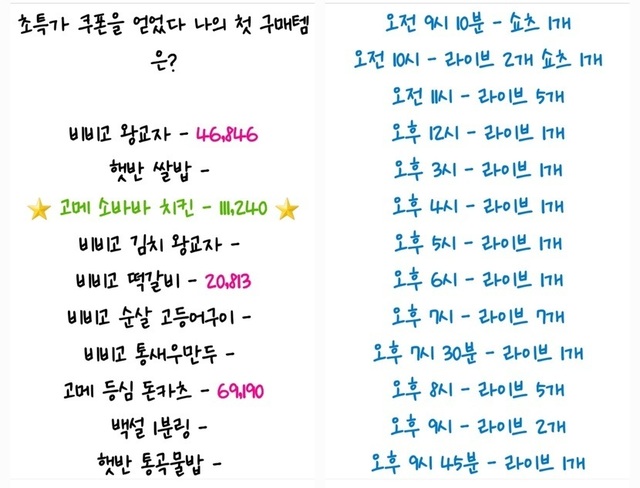 초특가 쿠폰을 얻었다 나의 첫 구매템
은?
비비고 왕교자 - 46,846
햇반 쌀밥 -
고메 소바바 치킨 - 111,240
비비고 김치 왕교자 -
비비고 떡갈비 - 20,813
비비고 순살 고등어구이 -
비비고 통새우만두 -
고메 등심 돈카츠 - 69,190
백설 1분링 -
햇반 통곡물밥 -
오전 9시 10분 - 쇼츠 1개
오전 10시 - 라이브 2개 쇼츠 1개
오전 11시 - 라이브 5개
오후 12시 - 라이브 1개
오후 3시 - 라이브 1개
오후 4시 - 라이브 1개
오후 5시 - 라이브 1개
오후 6시 - 라이브 1개
오후 7시 - 라이브 7개
오후 7시 30분 - 라이브 1개
오후 8시 - 라이브 5개
오후 9시 - 라이브 2개
오후 9시 45분 - 라이브 1개